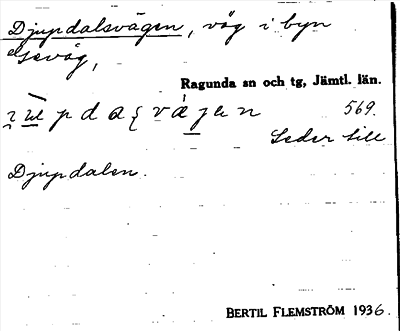 Djupdalsvägen, väg i byn
Gevåg,
Ragunda sn och tg, Jämtl. län.
569.
Leder till
Djupdalen.
BERTIL FLEMSTRÖM 1936.